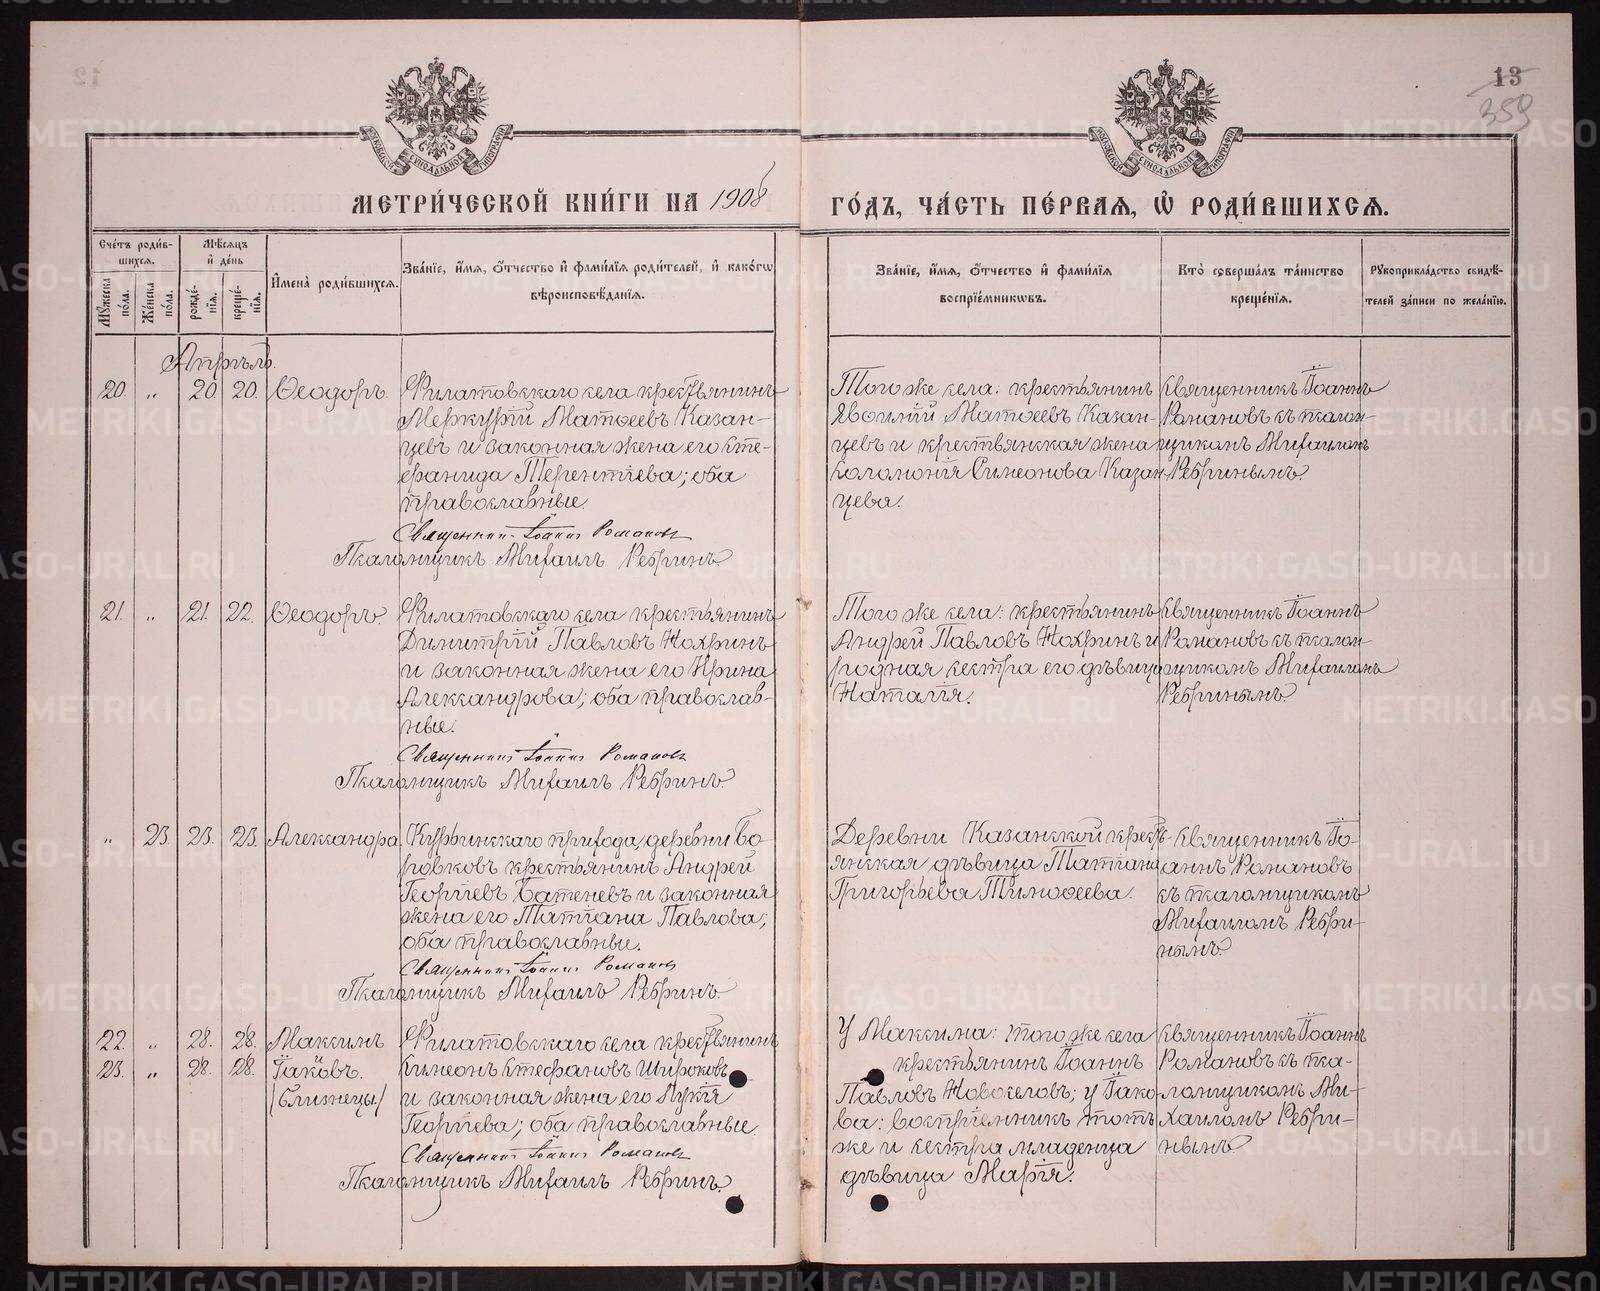 13
359
МЕТРИ́ЧЕСКОЙ КНИ́ГИ НА 1908
ГО́ДЪ, ЧА́СТЬ ПЕ́РВАЯ, Ѡ РОДИ́ВШИХСѦ.
Сче́тъ роди́в-
шихсѧ.
Мꙋ́жеска
по́ла.
Же́нска
по́ла.
Мѣ́сѧцъ
и҆ де́нь
рожде́-
нїѧ.
креще́-
нїѧ.
И҆мена̀ роди́вшихсѧ.
Зва́нїе, и҆́мѧ, ѻ҆́тчество и҆ фами́лїѧ роди́телей, и҆ како́гѡ
вѣроисповѣ́данїѧ.
Зва́нїе, и҆́мѧ, ѻ҆́тчество и҆ фами́лїѧ
воспрїе́мникѡвъ.
Кто̀ соверша́лъ та́инство
креще́нїѧ.
Рꙋкоприкла́дство свидѣ́-
телей за́писи по жела́нїю.
Апрѣль.
20. " 20. 20. Ѳеодоръ.
Филатовскаго села крестьянинъ
Меркурій Матѳеевъ Казан-
цевъ и законная жена его Сте-
фанида Терентіева; оба
православные.
Священникъ Іоаннъ Романовъ
Псаломщикъ Михаилъ Ребринъ
Того же села: крестьянинъ
Матѳеевъ Казан-
цевъ и крестьянская жена
Соломонія Симеонова Казан-
цева.
Священникъ Іоаннъ
Романовъ съ псалом-
щикомъ Михаиломъ
Ребринымъ
21. " 21. 22. Ѳеодоръ
Филатовскаго села крестьянинъ
Димитрій Павловъ Нохринъ
и законная жена его Ирина
Александрова; оба православ-
ные.
Священникъ Іоаннъ Романовъ
Псаломщикъ Михаилъ Ребринъ
Того же села: крестьянинъ
Андрей Павловъ Нохринъ и
родная сестра его дѣвица
Наталія.
Священникъ Іоаннъ
Романовъ съ псалом-
щикомъ Михаиломъ
Ребринымъ
" 23. 23. 23. Александра
Курьинскаго прихода, деревни Бо-
ровковъ крестьянинъ Андрей
Георгіевъ Батеневъ и законная
жена его Татіана Павлова;
оба православные.
Священникъ Іоаннъ Романовъ
Псаломщикъ Михаилъ Ребринъ
Деревни Казанской кресть-
янская дѣвица Татіана
Григорьева Тимоѳеева.
Священникъ Іо-
аннъ Романовъ
съ псаломщикомъ
Михаиломъ Ребри-
нымъ
22. " 28. 28. Максимъ
23. " 28. 28. Іаковъ.
/Близнецы/
Филатовскаго села крестьянинъ
Симеонъ Стефановъ Широковъ
и законная жена его Лукія
Георгіева; оба православные
Священникъ Іоаннъ Романовъ
Псаломщикъ Михаилъ Ребринъ.
У Максима: того же села
крестьянинъ Іоаннъ
Павловъ Новоселовъ; у Іако-
ва: воспріемникъ тотъ
же и сестра младенца
дѣвица Марія.
Священникъ Іоаннъ
Романовъ съ пса-
ломщикомъ Ми-
хаиломъ Ребри-
нымъ